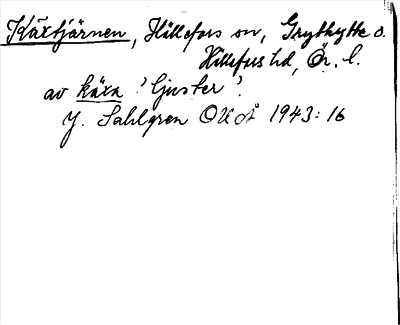 Käxtjärnen, Hällefors sn, Grythytte o.
Hällefors hd, Ör. l.
av käxa 'ljuster'.
J. Sahlgren OUÅ 1943:16